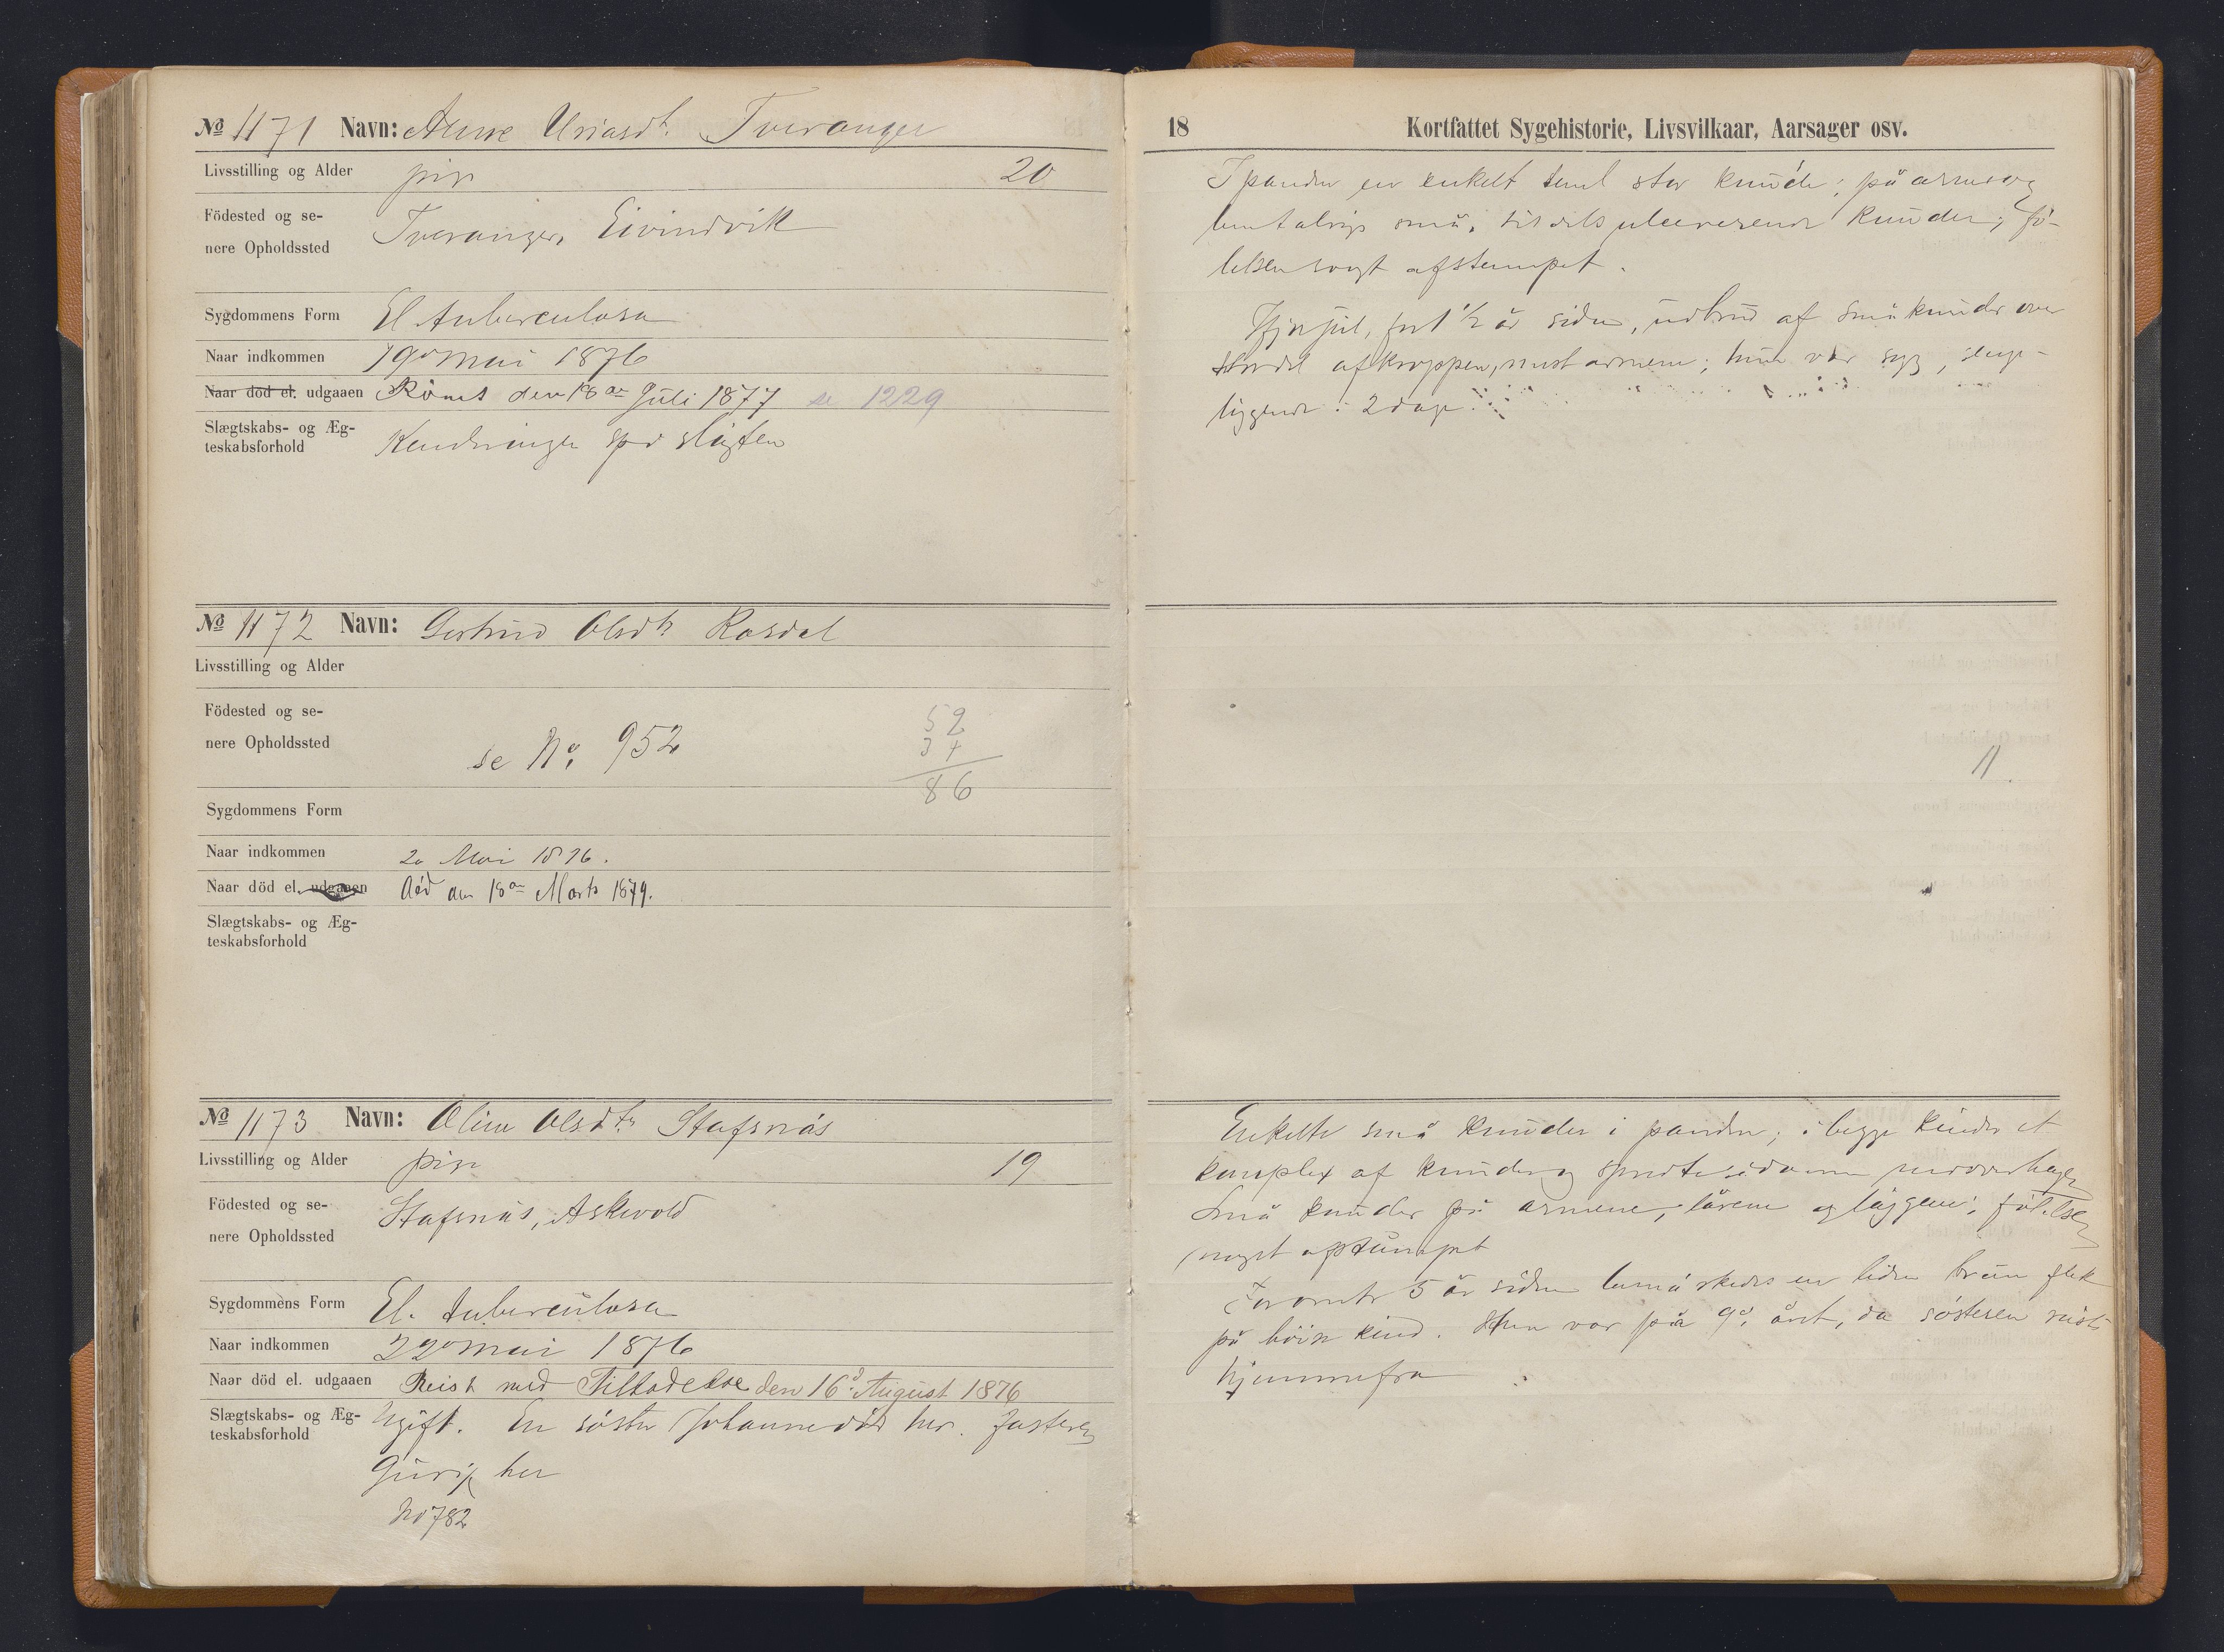 № 1171 Navn: Anne Uriasdt. Tveranger
Livsstilling og Alder pige 20
Födested og se-
nere Opholdssted Tveranger, Eivindvik
Sygdommens Form El. tuberculosa
Naar indkommen 19de mai 1876
Naar död el. udgaaen Römt den 18de Juli 1877 se 1229
Slægtskabs- og Æg-
teskabsforhold slägten
№ 1172 Navn: Gertrud Olsdtr Rosdal
Livsstilling og Alder
Födested og se-
nere Opholdssted se No. 952
52
34
86
Sygdommens Form
Naar indkommen 20 Mai 1876.
Naar död el. udgaaen död den 18de Marts 1879.
Slægtskabs- og Æg-
teskabsforhold
№ 1173 Navn: Oline Olsdtr. Stafsnäs
Livsstilling og Alder pige 19
Födested og se-
nere Opholdssted Stafsnäs, Askevold
Sygdommens Form El. tuberculosa
Naar indkommen 22de mai 1876
Naar död el. udgaaen Reist med Tilladelse den 16de August 1876
Slægtskabs- og Æg-
teskabsforhold Ugift. En söster Johanne död her. Fasteren
Guri her
No 782
18 Kortfattet Sygehistorie, Livsvilkaar, Aarsager osv.
I panden en enkelt temel stor knude; på arme og
ben talrige små, tildels ulcererende knuder; fö-
lelsen svagt afstumpet.
jul, for 1 1/2 år siden, udbrud af små knuder over
af kroppen, mest armene; hun var syg, senge-
liggende i 2 dage.
11.
Enkelte små knuder i panden; i begge kinder et
komplex af knuder og
Små knuder på armene, lårene og läggene; fölelsen
noget afstumpet
For omtr 5 år siden bemärkedes en liden brun flek
på höire kind. Hun var på 9de året, da sösteren reiste
hjemmefra